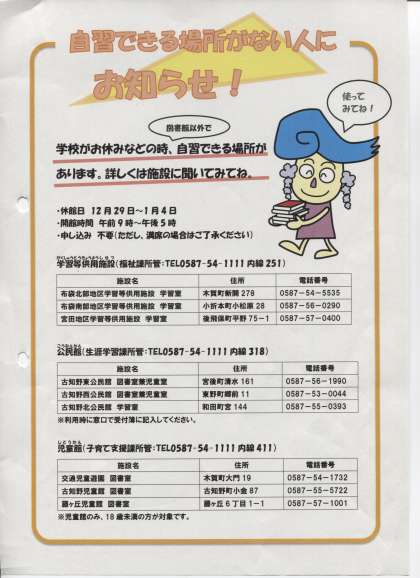 自習できる場所がない人に
お知らせ！
使って
みてね！
図書館以外で
学校がお休みなどの時、自習できる場所が
あります。詳しくは施設に聞いてみてね。
・休館日 12月29日～1月4日
・開館時間 午前9時～午後5時
・申し込み 不要（ただし、満席の場合はご了承ください）
がくしゅうとうきょうようしせつ
学習等供用施設（福祉課所管：TEL0587-54-1111 内線251）
施設名 住所 電話番号
布袋北部地区学習等供用施設 学習室 木賀町新開278 0587-54-5535
布袋南部地区学習等供用施設 学習室 小折本町小松原28 0587-56-0290
宮田地区学習等供用施設 学習室 後飛保町平野75-1 0587-57-0400
こうみんかん
公民館（生涯学習課所管：TEL0587-54-1111 内線318）
施設名 住所 電話番号
古知野東公民館 図書室兼児童室 宮後町清水161 0587-56-1990
古知野西公民館 図書室兼児童室 東野町郷前11 0587-53-0044
古知野北公民館 学習室 和田町宮144 0587-55-0393
※利用時に窓口で受付簿に記入してください。
じどうかん
児童館（子育て支援課所管：TEL0587-54-1111 内線411）
施設名 住所 電話番号
交通児童遊園 図書室 木賀町大門19 0587-54-1732
古知野児童館 図書室 古知野町小金87 0587-55-5722
藤ヶ丘児童館 図書室 藤ヶ丘6丁目1-1 0587-57-1001
※児童館のみ、18歳未満の方が対象です。